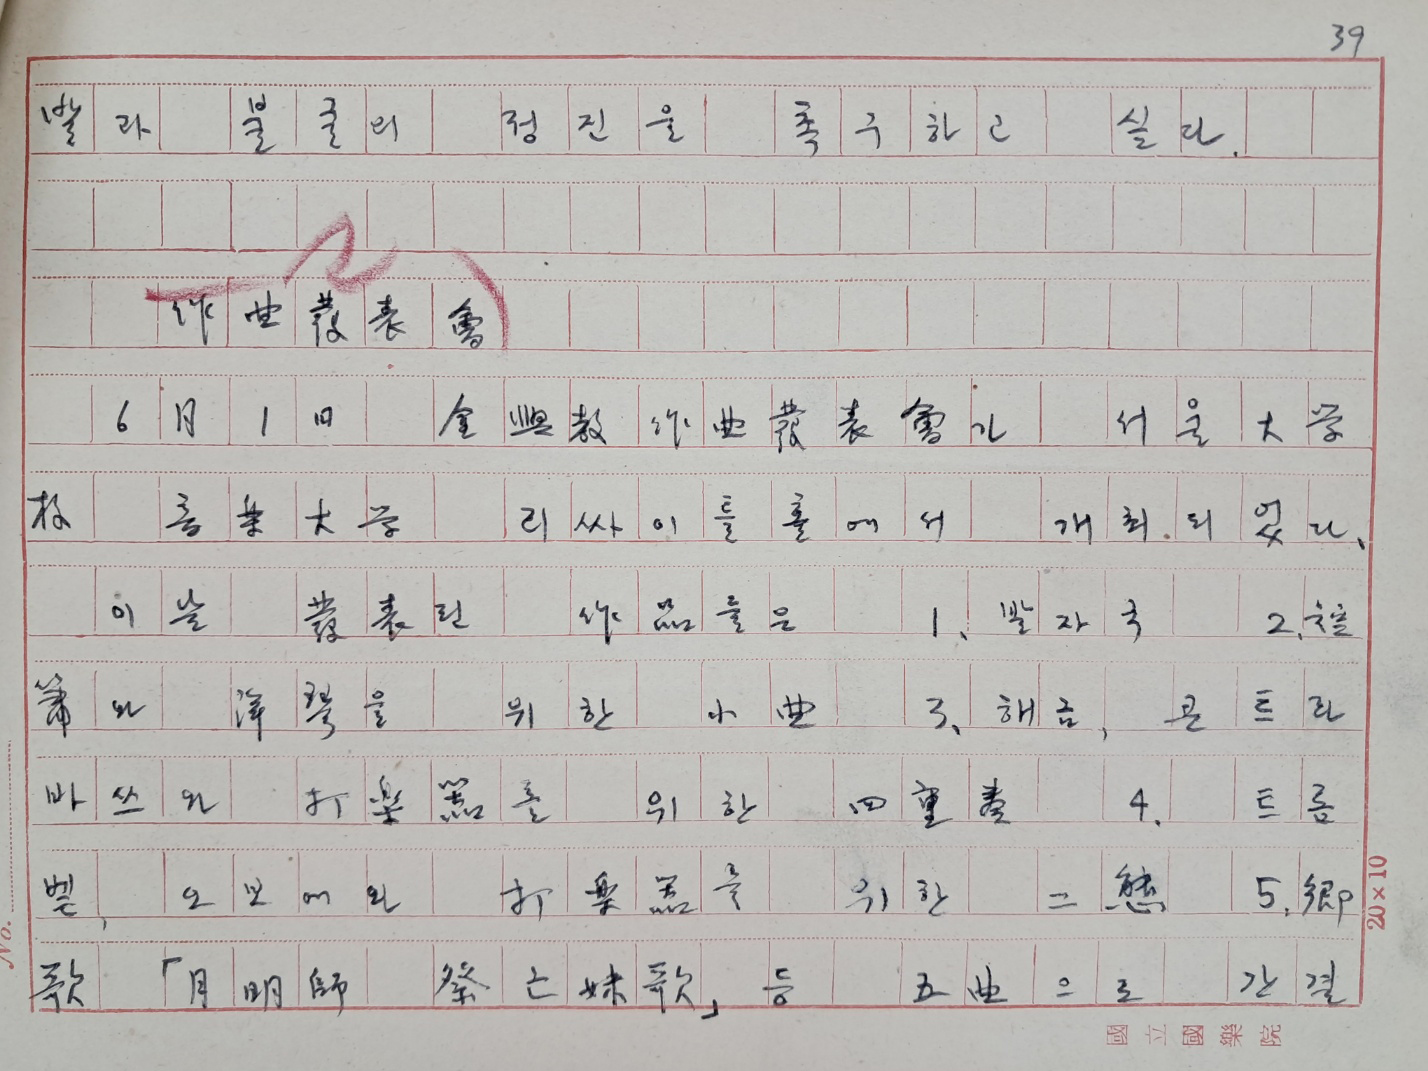 39
발과 불굴의 정진을 촉구하고 싶다.
作曲發表會
6月1日 金興敎作曲發表會가 서울大学
校 音楽大学 리싸이틀홀에서 개최되었다.
이날 發表된 作品들은 1. 발자국 2. 短
簫와 洋琴을 위한 小曲 3. 해금, 콘트라
바쓰와 打楽器를 위한 四重奏 4. 트롬
벨, 오보에와 打楽器를 위한 二態 5. 鄕
歌 「月明師 祭亡妹歌」 등 五曲으로 간결
No.
20×10
國立國樂院